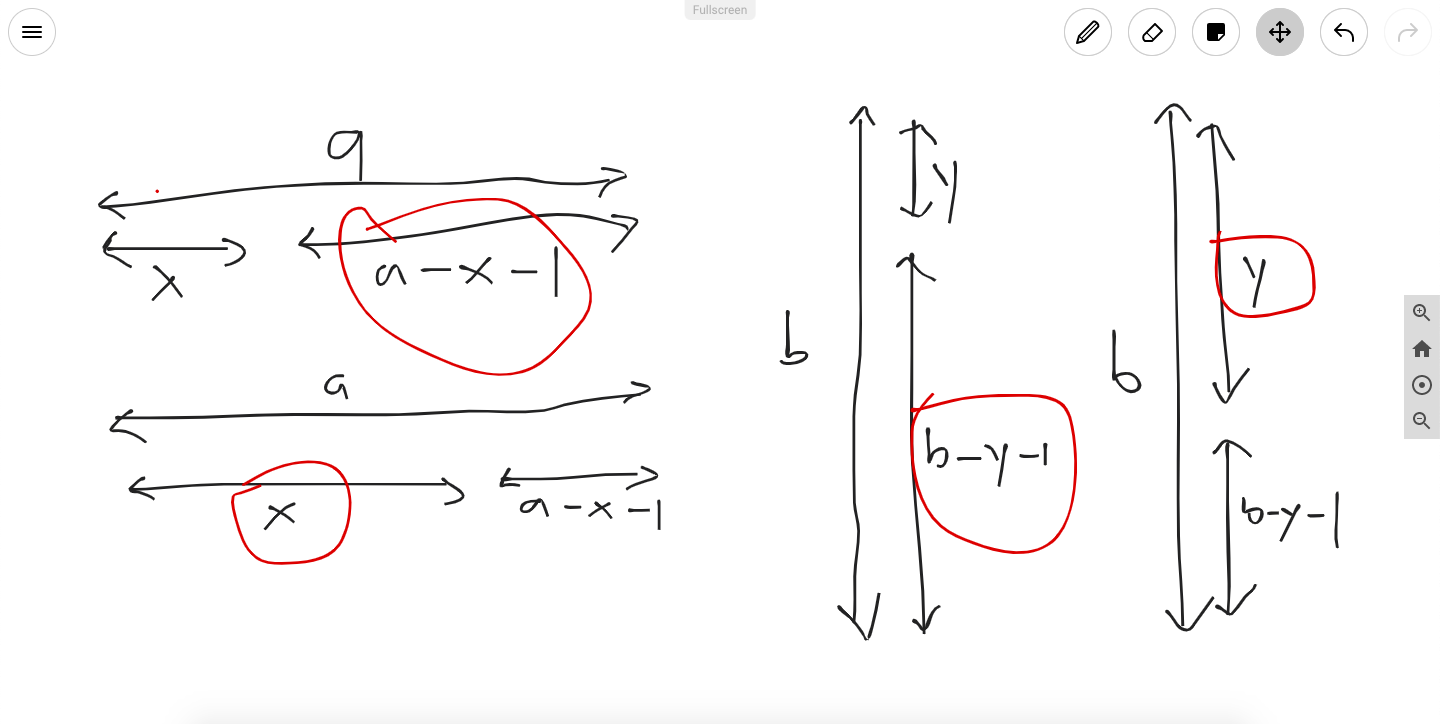 Fullscreen
a
x
a-x-1
a
x
a-x-1
b
y
b-y-1
b
y
b-y-1